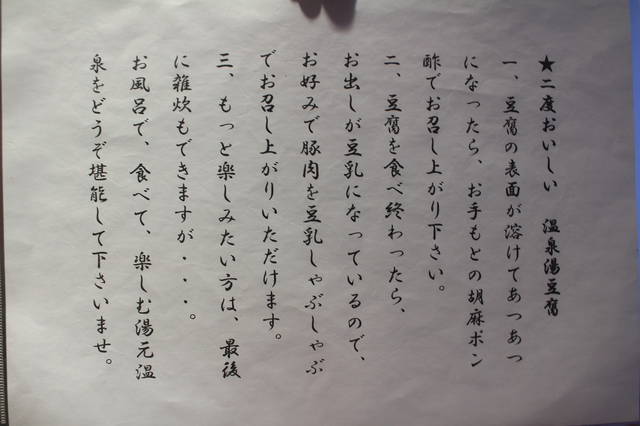 ★二度おいしい　温泉湯豆腐
一、豆腐の表面が溶けてあつあつ
になったら、お手もとの胡麻ポン
酢でお召し上がり下さい。
二、豆腐を食べ終わったら、
お出しが豆乳になっているので、
お好みで豚肉を豆乳しゃぶしゃぶ
でお召し上がりいただけます。
三、もっと楽しみたい方は、最後
に雑炊もできますが・・・。
お風呂で、食べて、楽しむ湯元温
泉をどうぞ堪能して下さいませ。